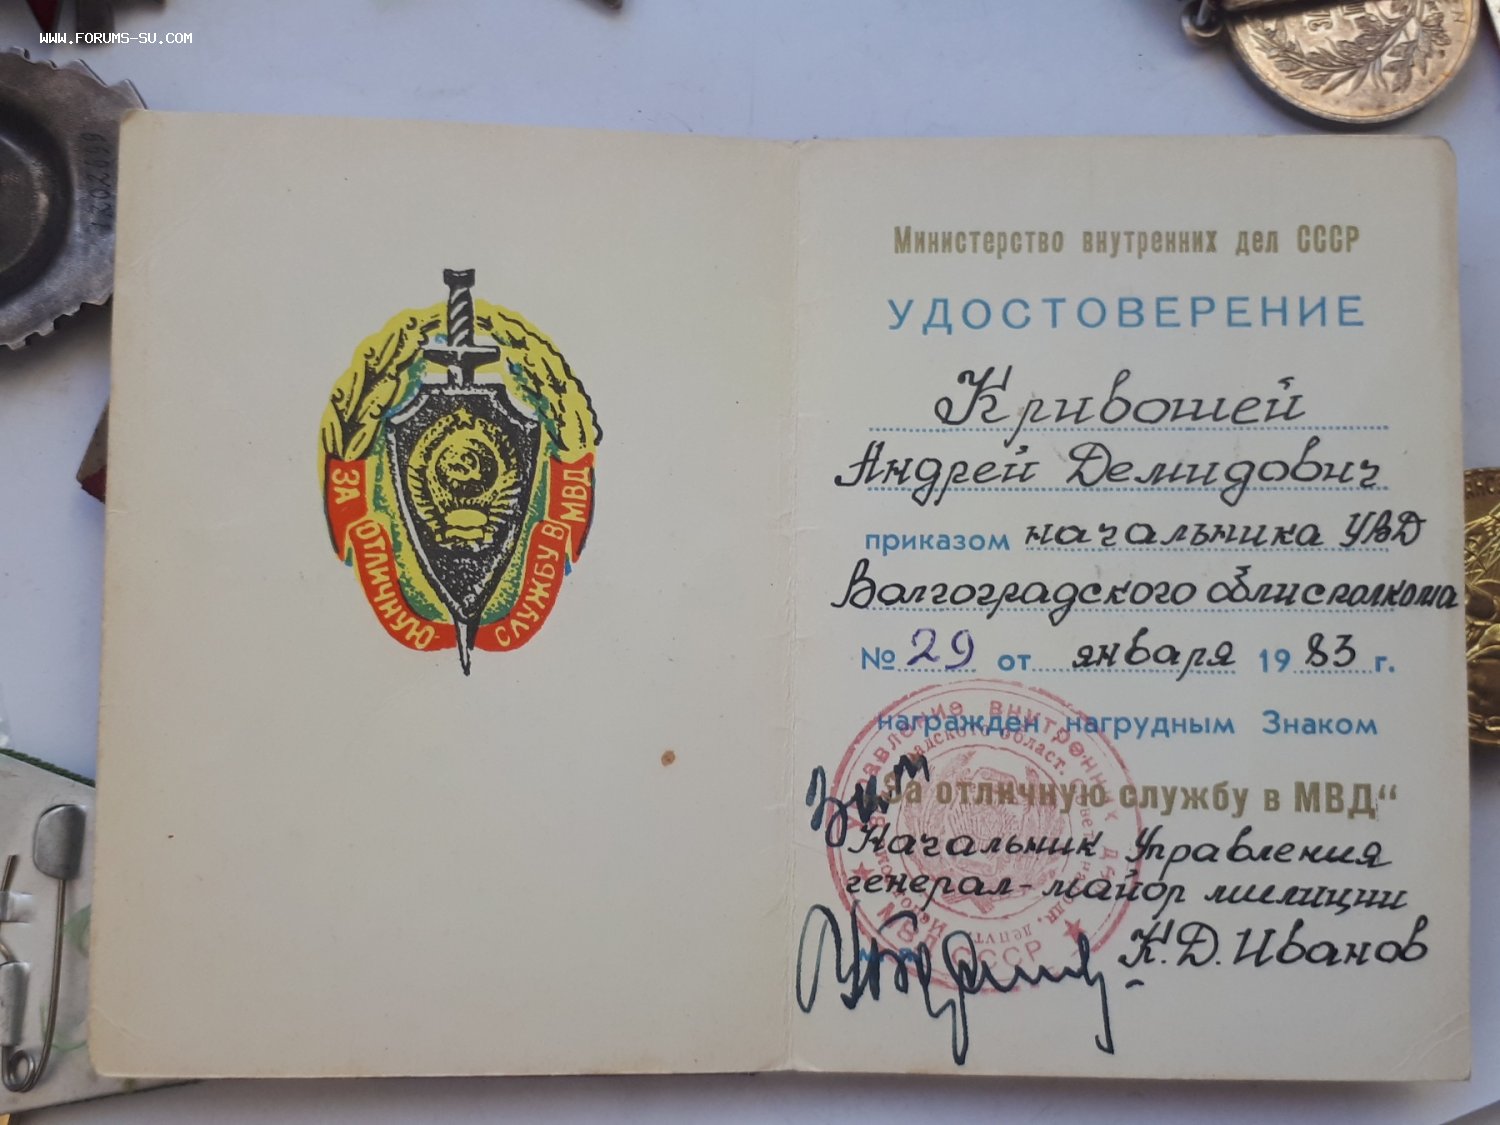 WWW.FORUMS-SU.COM
1202699
ЗА ОТЛИЧНУЮ СЛУЖБУ В МВД
Министерство внутренних дел СССР
УДОСТОВЕРЕНИЕ
Кривошей
Андрей Демидович
приказом начальника УВД
Волгоградского облисполкома
№ 29 от января 1983 г.
награжден нагрудным Знаком
„За отличную службу в МВД“
Начальник Управления
генерал-майор милиции
К.Д.Иванов
МВД СССР